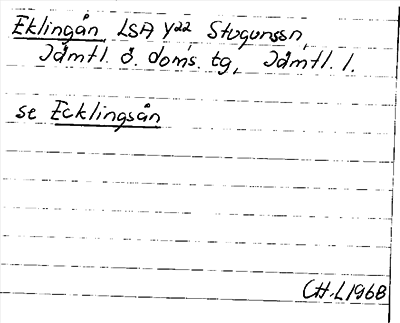 Eklingån LSA Y22 Stugunssn,
Jämtl. ö. doms. tg, Jämtl. l.
se Ecklingsån
CH.L 1968